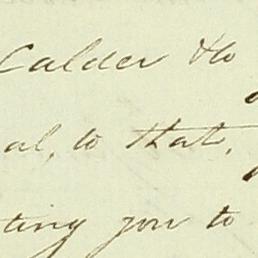 Calder & Co
al, to that,
ting you to